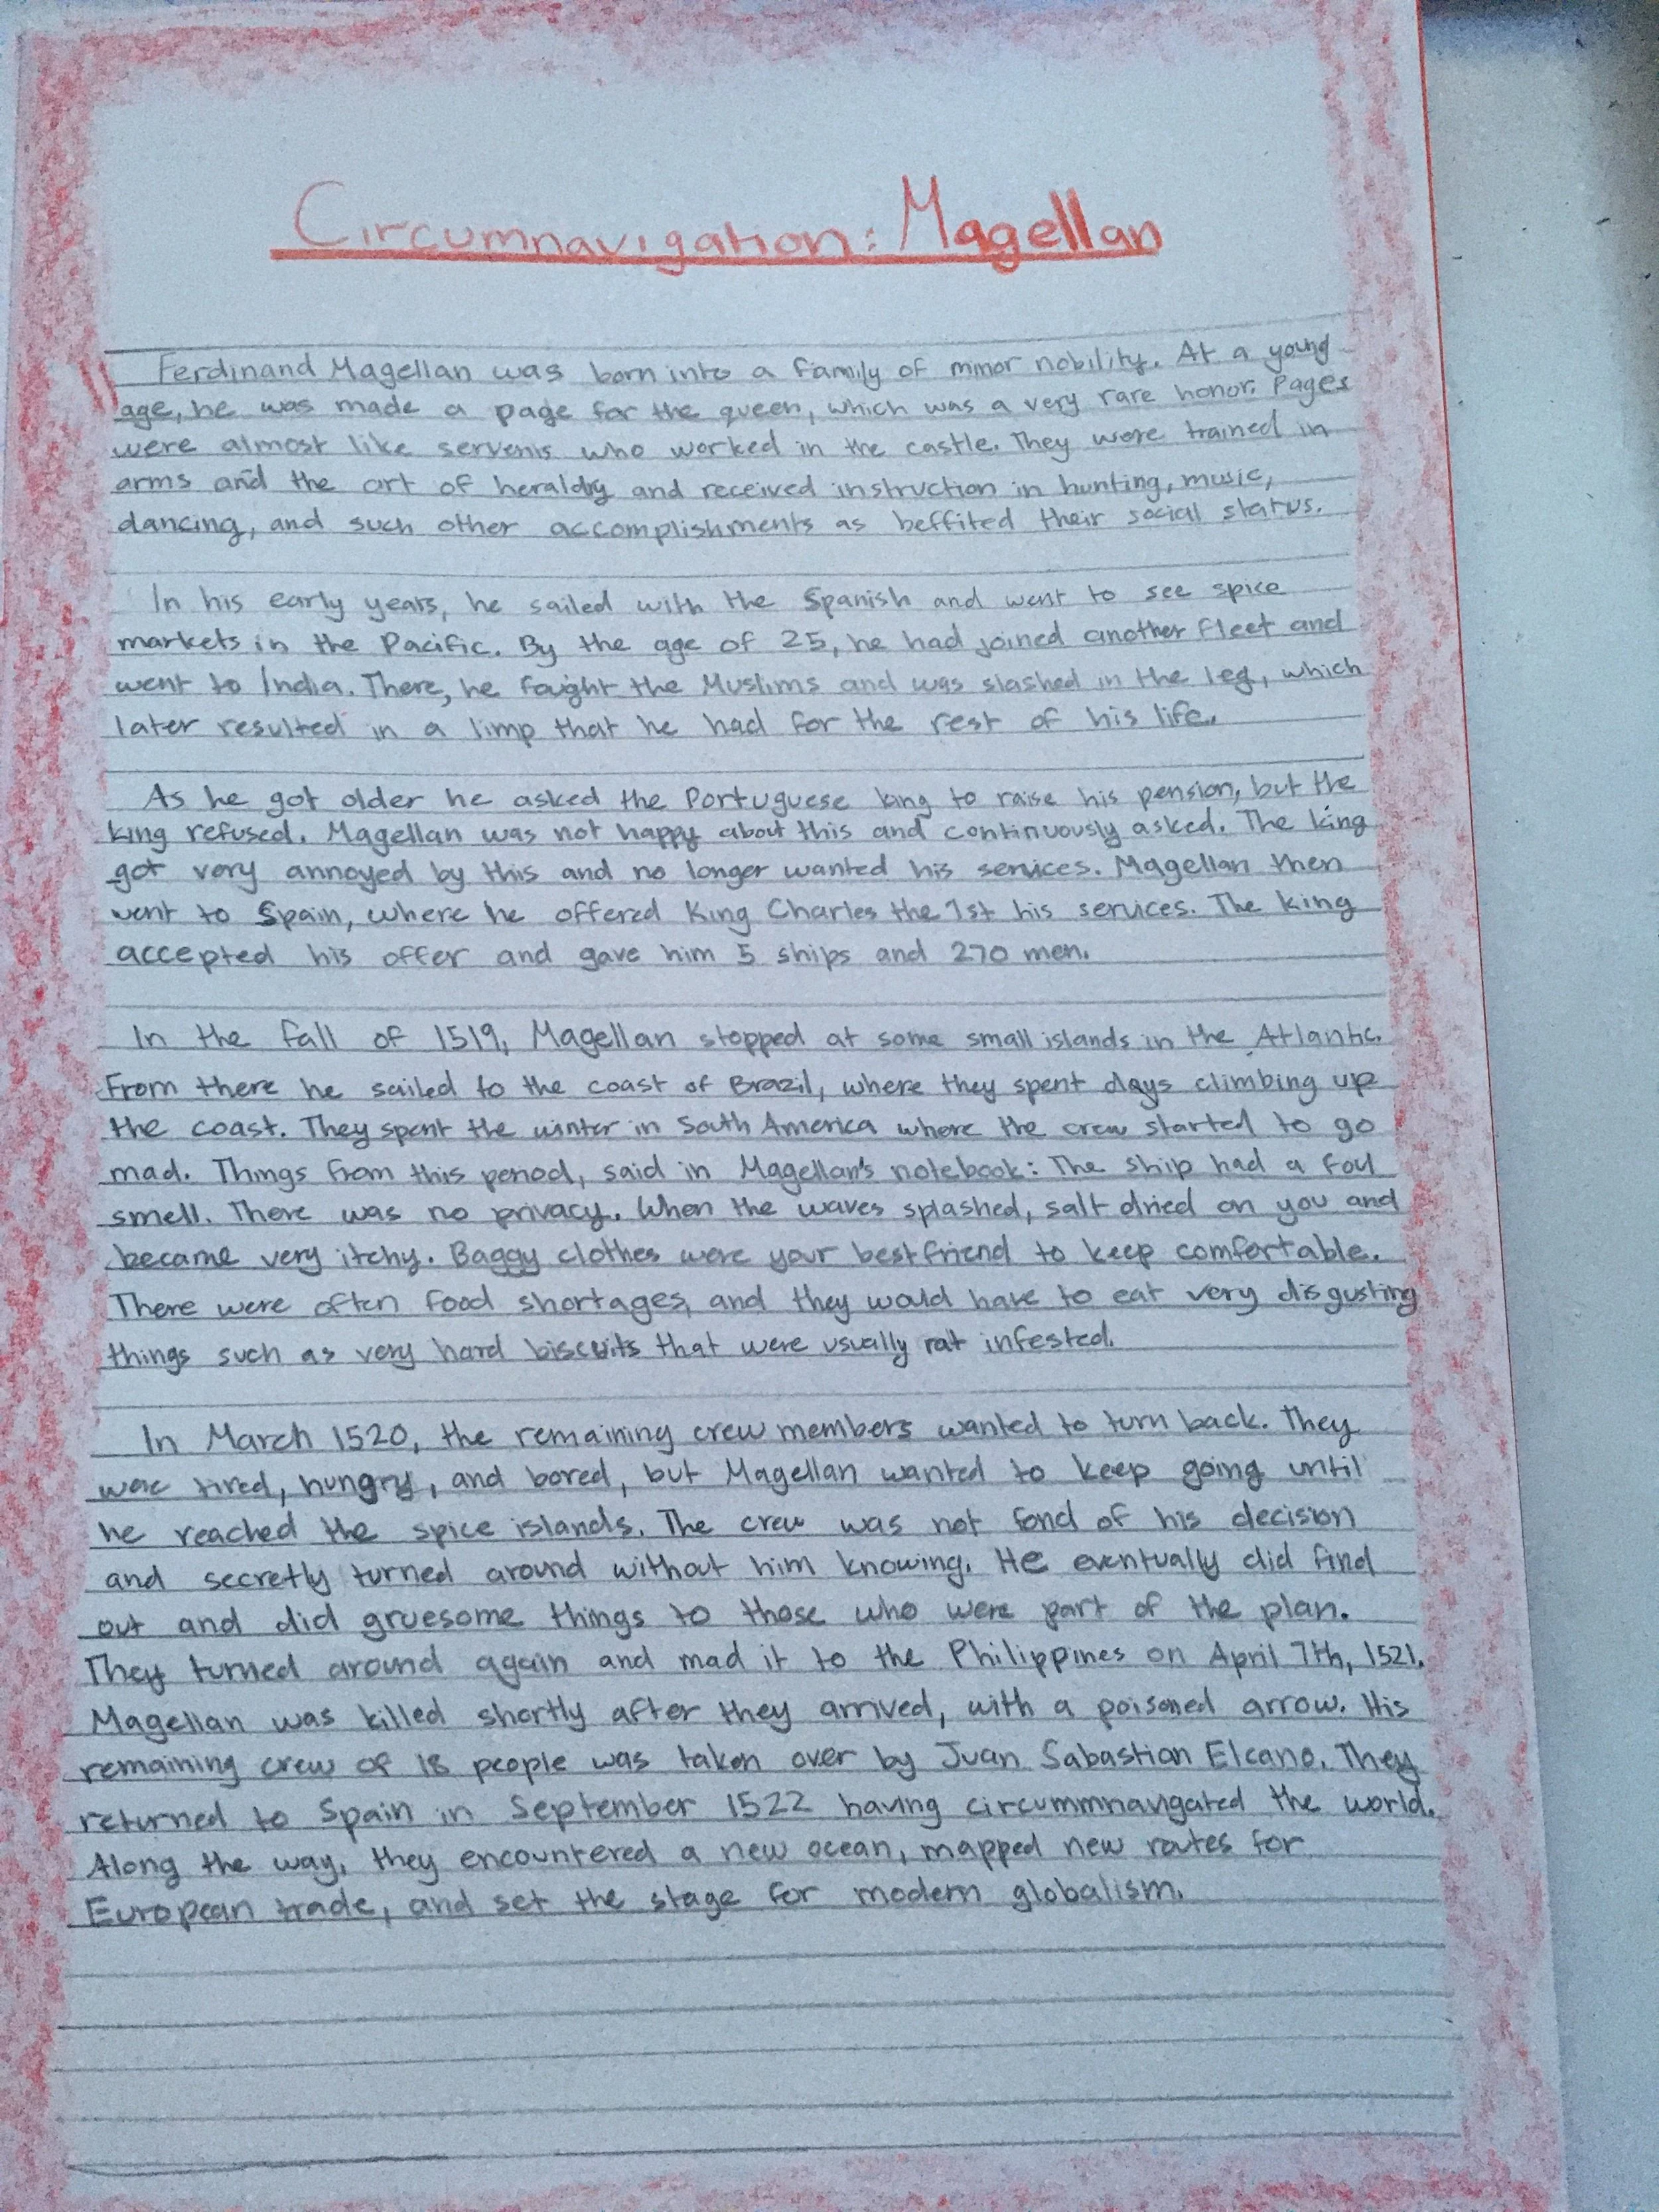 Circumnavigation: Magellan
Ferdinand Magellan was born into a family of minor nobility. At a young
age, he was made a page for the queen, which was a very rare honor. Pages
were almost like servents who worked in the castle. They were trained in
arms and the art of heraldry and received instruction in hunting, music,
dancing, and such other accomplishments as beffited their social status.
In his early years, he sailed with the Spanish and went to see spice
markets in the Pacific. By the age of 25, he had joined another fleet and
went to India. There, he fought the Muslims and was slashed in the leg, which
later resulted in a limp that he had for the rest of his life.
As he got older he asked the Portuguese king to raise his pension, but the
king refused. Magellan was not happy about this and continuously asked. The king
got very annoyed by this and no longer wanted his services. Magellan then
went to Spain, where he offered King Charles the 1st his services. The king
accepted his offer and gave him 5 ships and 270 men.
In the fall of 1519, Magellan stopped at some small islands in the Atlantic.
From there he sailed to the coast of Brazil, where they spent days climbing up
the coast. They spent the winter in South America where the crew started to go
mad. Things from this period, said in Magellan's notebook: The ship had a foul
smell. There was no privacy. When the waves splashed, salt dried on you and
became very itchy. Baggy clothes were your bestfriend to keep comfortable.
There were often food shortages, and they would have to eat very disgusting
things such as very hard biscuits that were usually rat infested.
In March 1520, the remaining crew members wanted to turn back. They
were tired, hungry, and bored, but Magellan wanted to keep going until
he reached the spice islands. The crew was not fond of his decision
and secretly turned around without him knowing. He eventually did find
out and did gruesome things to those who were part of the plan.
They turned around again and mad it to the Philippines on April 7th, 1521.
Magellan was killed shortly after they arrived, with a poisoned arrow. His
remaining crew of 18 people was taken over by Juan Sabastian Elcano. They
returned to Spain in September 1522 having circummnavigated the world.
Along the way, they encountered a new ocean, mapped new routes for
European trade, and set the stage for modern globalism.